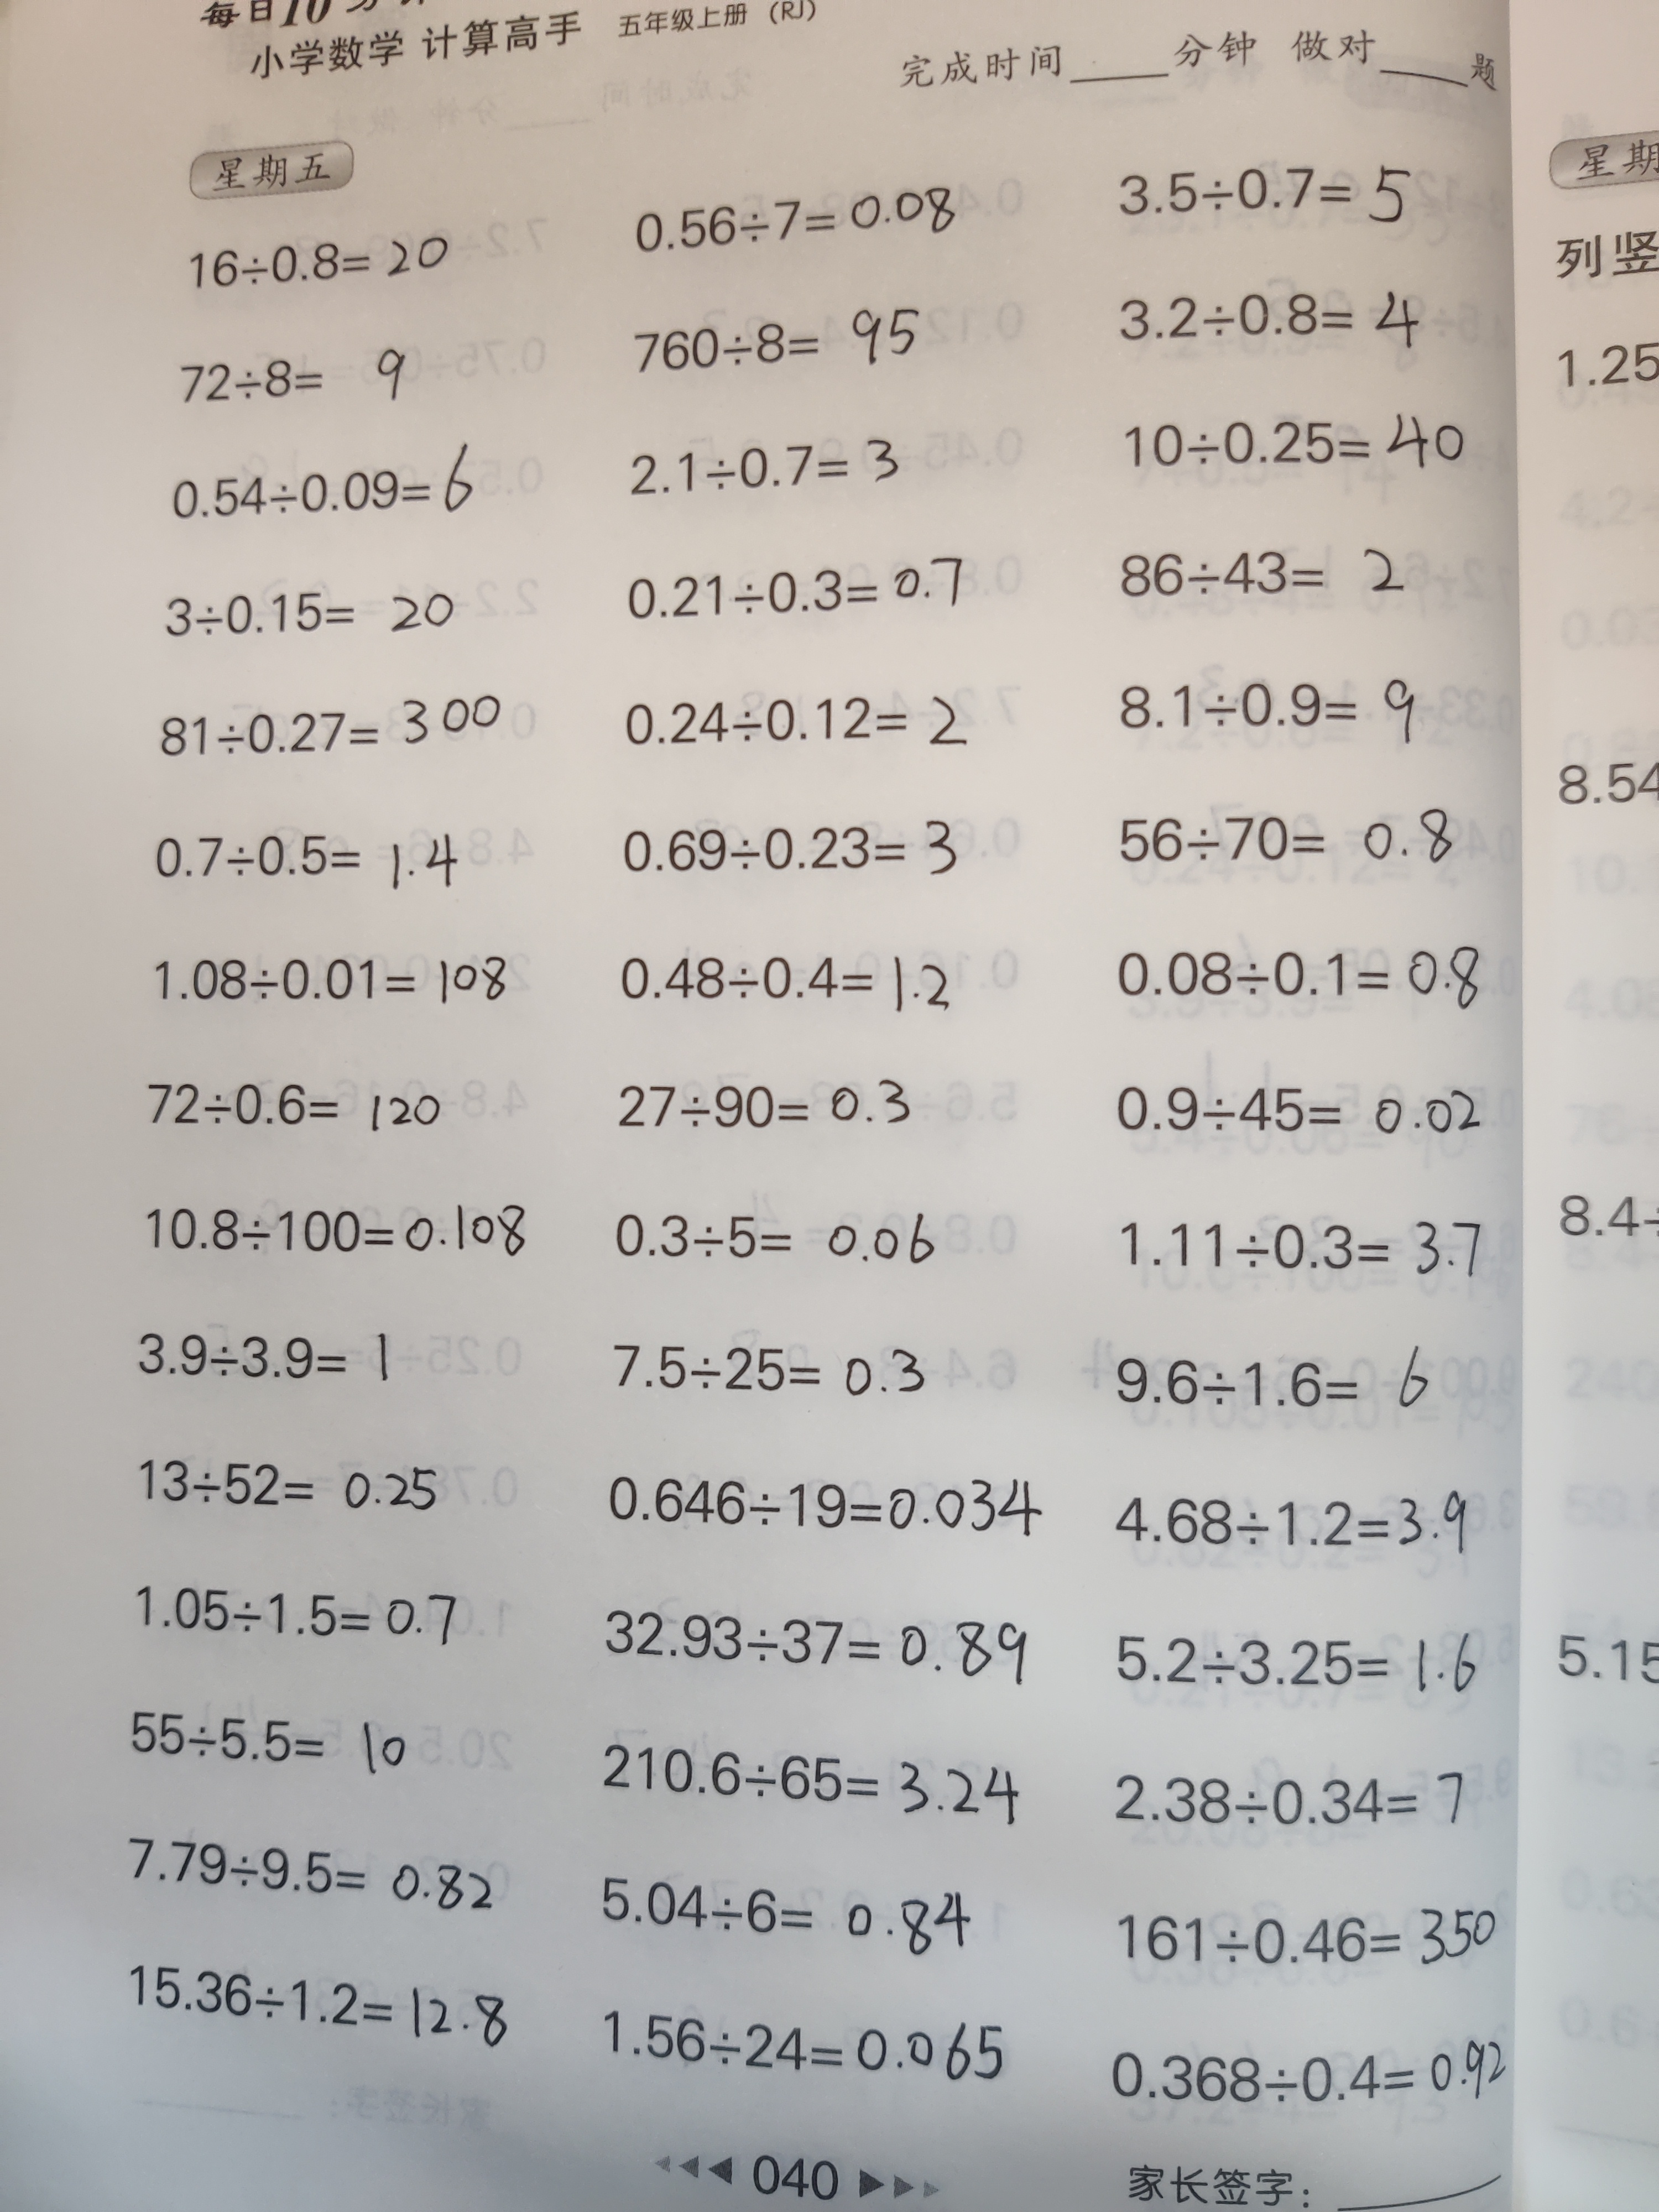 每日10分钟
小学数学 计算高手 五年级上册 (RJ)
完成时间_____分钟 做对____题
星期五
16÷0.8=20
72÷8= 9
0.54÷0.09=6
3÷0.15= 20
81÷0.27= 300
0.7÷0.5= 1.4
1.08÷0.01= 108
72÷0.6= 120
10.8÷100=0.108
3.9÷3.9= 1
13÷52= 0.25
1.05÷1.5=0.7
55÷5.5= 10
7.79÷9.5= 0.82
15.36÷1.2=12.8
0.56÷7=0.08
760÷8= 95
2.1÷0.7=3
0.21÷0.3=0.7
0.24÷0.12=2
0.69÷0.23=3
0.48÷0.4=1.2
27÷90= 0.3
0.3÷5= 0.06
7.5÷25= 0.3
0.646÷19=0.034
32.93÷37= 0.89
210.6÷65= 3.24
5.04÷6= 0.84
1.56÷24=0.065
3.5÷0.7=5
3.2÷0.8= 4
10÷0.25=40
86÷43= 2
8.1÷0.9= 9
56÷70= 0.8
0.08÷0.1=0.8
0.9÷45= 0.02
1.11÷0.3= 3.7
9.6÷1.6= 6
4.68÷1.2=3.9
5.2÷3.25= 1.6
2.38÷0.34= 7
161÷0.46=350
0.368÷0.4=0.92
040
家长签字:_____
星期
列竖
1.25
8.54
8.4÷
5.15